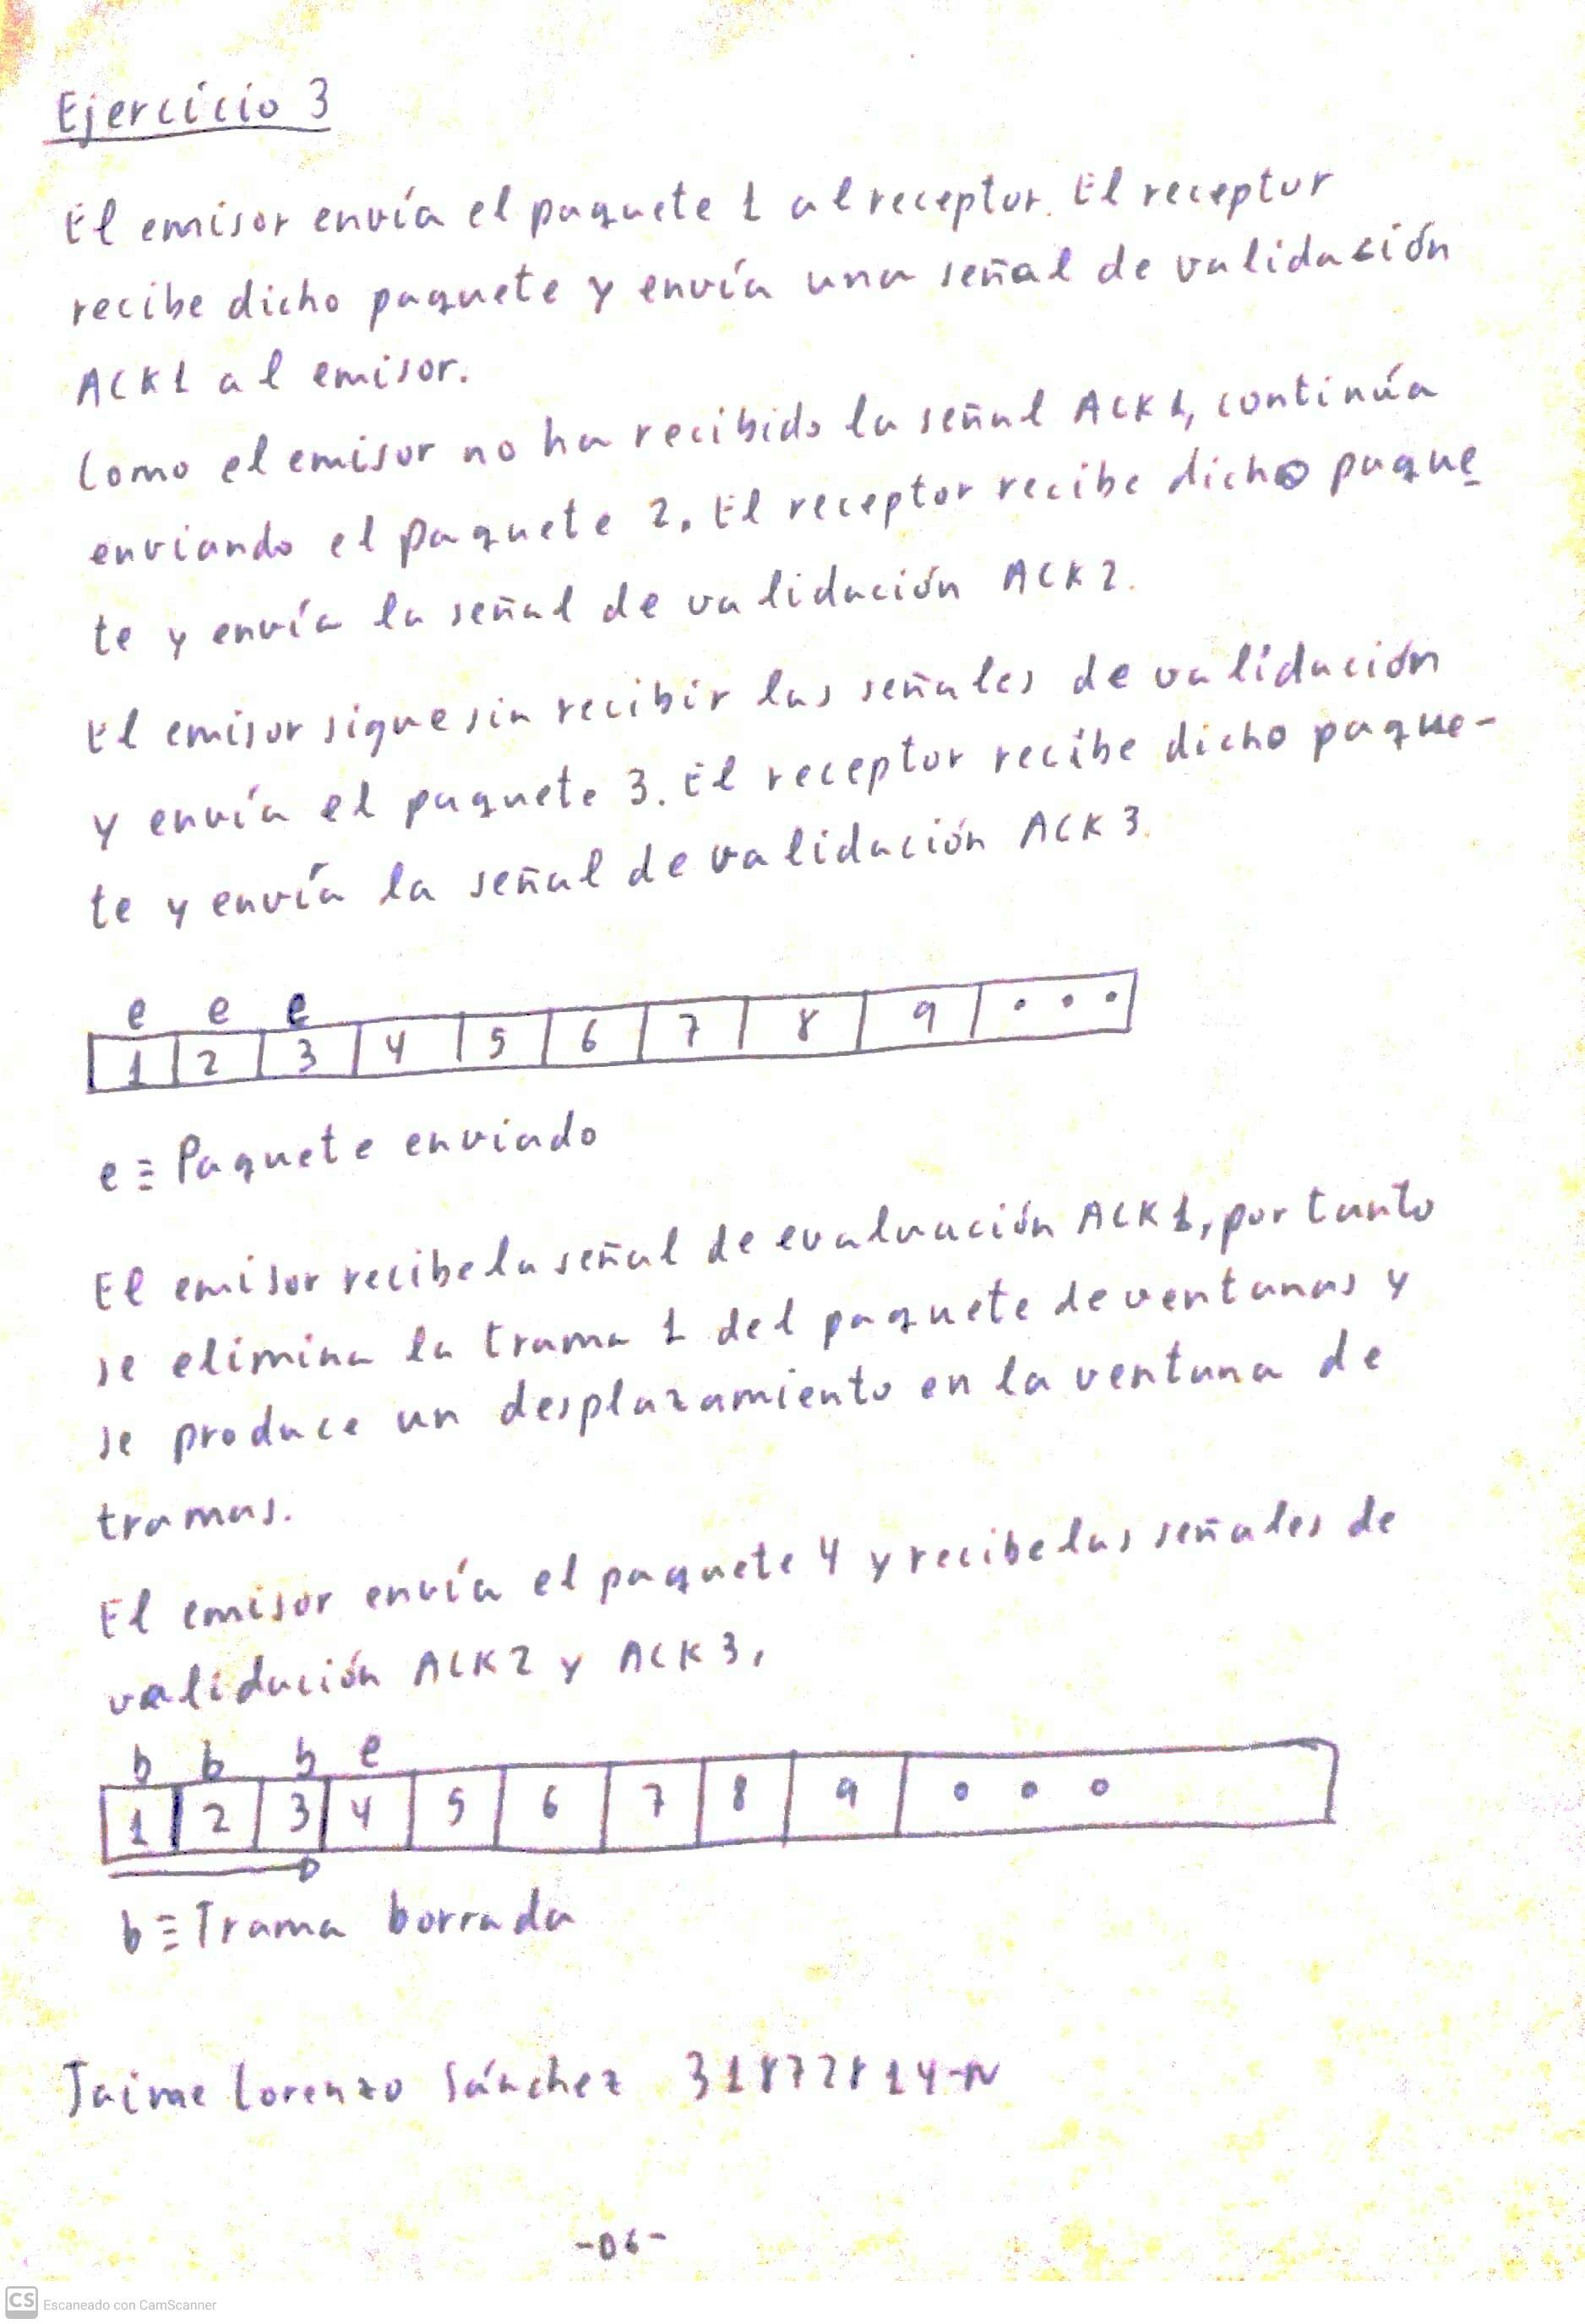 Ejercicio 3
El emisor envía el paquete 1 al receptor. El receptor
recibe dicho paquete y envía una señal de validación
ACK1 al emisor.
Como el emisor no ha recibido la señal ACK1, continúa
enviando el paquete 2. El receptor recibe dicho paque
te y envía la señal de validación ACK2.
El emisor sigue sin recibir las señales de validación
y envía el paquete 3. El receptor recibe dicho paque-
te y envía la señal de validación ACK3.
e e e
1 2 3 4 5 6 7 8 9 . . .
e ≡ Paquete enviado
El emisor recibe la señal de evaluación ACK1, por tanto
se elimina la trama 1 del paquete de ventanas y
se produce un desplazamiento en la ventana de
tramas.
El emisor envía el paquete 4 y recibe las señales de
validación ACK2 y ACK3.
b b b e
1 2 3 4 5 6 7 8 9 . . .
b ≡ Trama borrada
Jaime Lorenzo Sánchez 31872814-N
-06-
CS Escaneado con CamScanner